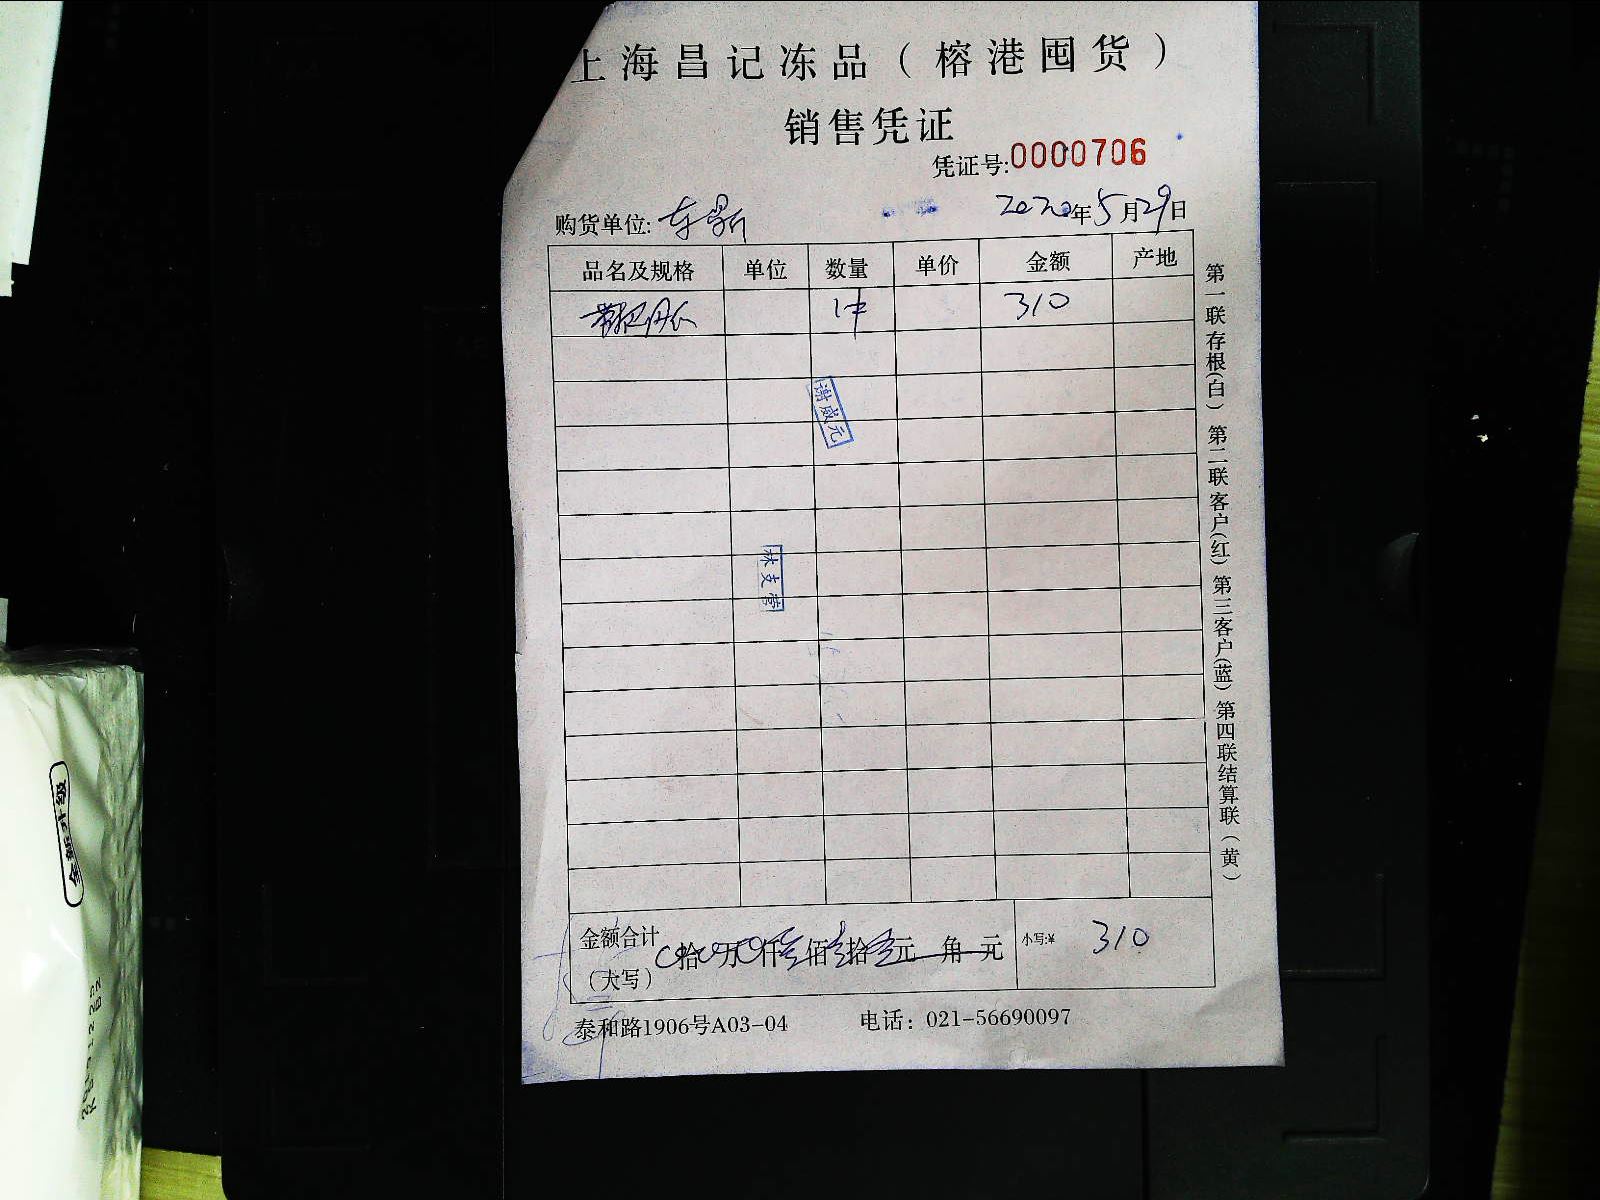 上海昌记冻品（榕港囤货）
销售凭证
凭证号:0000706
购货单位: 2020年5月29日
品名及规格 单位 数量 单价 金额 产地
1件 310
谢威元
林支营
金额合计 拾 万 仟 佰 拾 元 角 元 小写:¥ 310
（大写）
泰和路1906号A03-04 电话：021-56690097
第一联存根(白) 第二联客户(红) 第三客户(蓝) 第四联结算联（黄）
全新升级